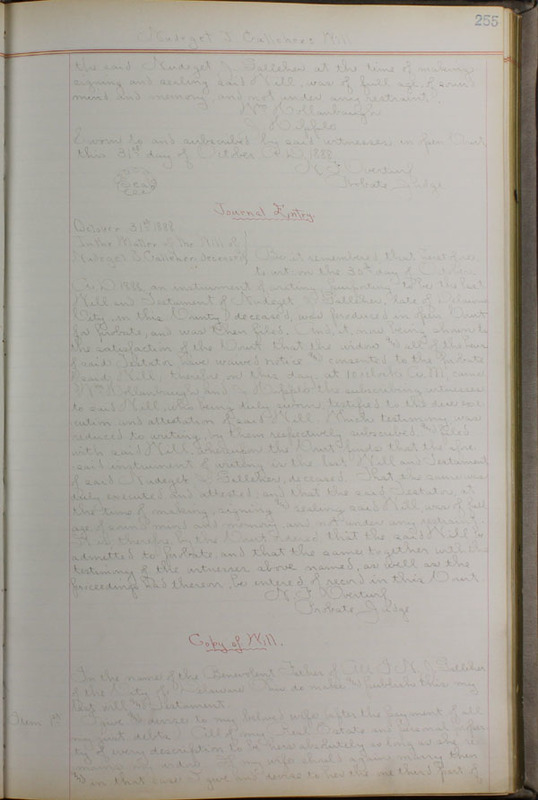 255
J. Will
the said J. Gallaher at the time of making
signing and sealing said Will, was of full age, of sound
mind and memory and not under any restraint.
Sworn to and subscribed by said witnesses in open Court
this 31st day of October A.D. 1888
N. F. Overturf
Seal Probate Judge
Journal Entry
October 31st 1888
In the Matter of the Will of
J. deceased Be it remembered that heretofore
to wit on the day of October
A.D. 1888, an instrument of writing, purporting to be the last
Will and Testament of J. Gallaher, late of Delaware
City, in this County, deceased, was produced in open Court
for Probate, and was then filed. And it now being shown to
the satisfaction of the Court that the widow & all of the heirs
of said Testator have waived notice & consented to the Probate
of said Will; therefore, on this day, at 10 o'clock A.M. came
Wm and the subscribing witnesses
to said Will, who being duly sworn, testified to the due exe-
cution and attestation of said Will. Which testimony was
reduced to writing, by them respectively subscribed & filed
with said Will. Whereupon the Court finds that the afore-
said instrument of writing is the last Will and Testament
of said J. Gallaher, deceased. That the same was
duly executed and attested, and that the said Testator, at
the time of making, signing & sealing said Will, was of full
age, of sound mind and memory, and not under any restraint.
It is therefore, by the Court ordered that the said Will be
admitted to Probate, and that the same, together with the
testimony of the witnesses above named, as well as the
proceedings had thereon, be entered of record in this Court.
N. F. Overturf
Probate Judge
Copy of Will.
In the name of the Benevolent Father of All I, N. J. Gallaher
of the City of Delaware do make & publish this my
last will & Testament.
Item 1st I give & devise to my beloved wife, after the payment of all
my just debts, All of my Real Estate and personal proper-
ty of every description to be hers absolutely so long as she re-
mains my widow. If my wife should again marry then
& in that case I give and devise to her the one third part of